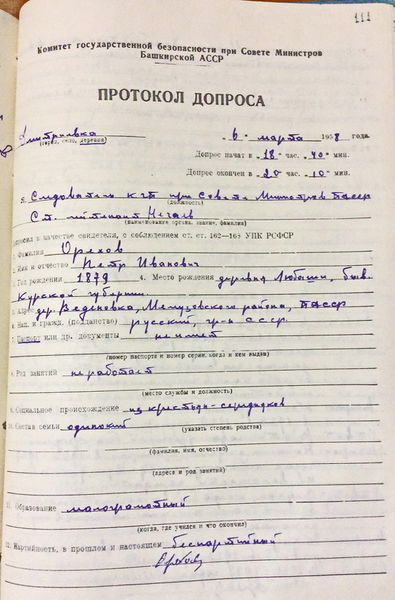 111
Комитет государственной безопасности при Совете Министров
Башкирской АССР
ПРОТОКОЛ ДОПРОСА
Дмитриевка
(город, село, деревня)
„6" марта 1958 года.
Допрос начат в 18 час. 40 мин.
Допрос окончен в 20 час. 10 мин.
Я, Следователь КГБ при Совете Министров БАССР
(должность)
Ст. лейтенант Нечаев
(наименование органа, звание, фамилия)
допросил в качестве свидетеля, с соблюдением ст. ст. 162—168 УПК РСФСР
Фамилия Орехов
Имя и отчество Петр Иванович
Год рождения 1879 4. Место рождения деревня Любыши, быв.
Курской губернии.
Адрес дер. Веденовка, Мелеузовского района, БАССР
Нац. и гражд. (подданство) русский, гр-н СССР.
7. Паспорт или др. документы не имеет
(номер паспорта и номер серии, когда и кем выдан)
Род занятий не работает
(место службы и должность)
9. Социальное происхождение из крестьян-середняков
10. Состав семьи одинокий
(указать степень родства)
(фамилия, имя, отчество)
(адреса и род занятий)
11. Образование малограмотный
(когда, где учился и что окончил)
12. Партийность, в прошлом и настоящем беспартийный
Орехов